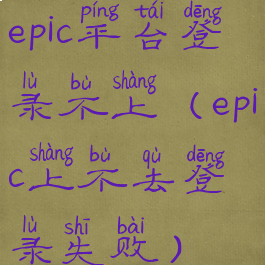 píng tái dēng
epic平台登
lù bù shàng
录不上（epi
shàng bù qù dēng
c上不去登
lù shī bài
录失败）